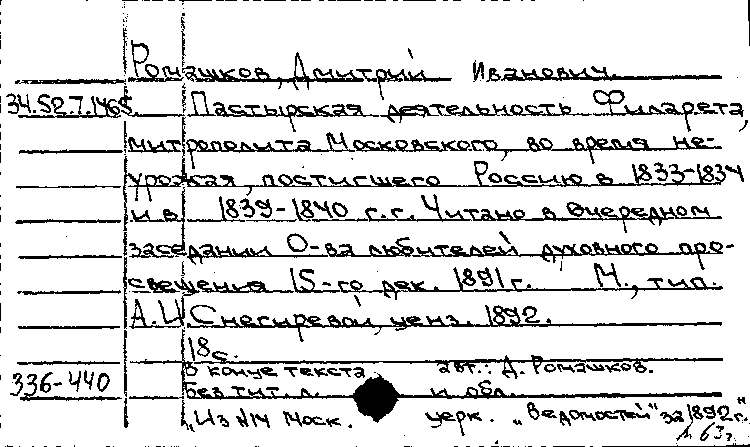 Ромашков, Дмитрий Иванович.
34.52.7.146 Пастырская деятельность Филарета,
митрополита Московского, во время не-
урожая, постигшего Россию в 1833-1834
и в 1839-1840 г.г. Читано в очередном
заседании О-ва любителей духовного про-
свещения 15-го дек. 1891 г. М., тип.
А.И. Снегиревой, ценз. 1892.
18 с.
336-440 В конце текста авт.: Д. Ромашков.
Без тит. л. и обл.
„Из №14 Моск. церк. „Ведомостей" за 1892 г."